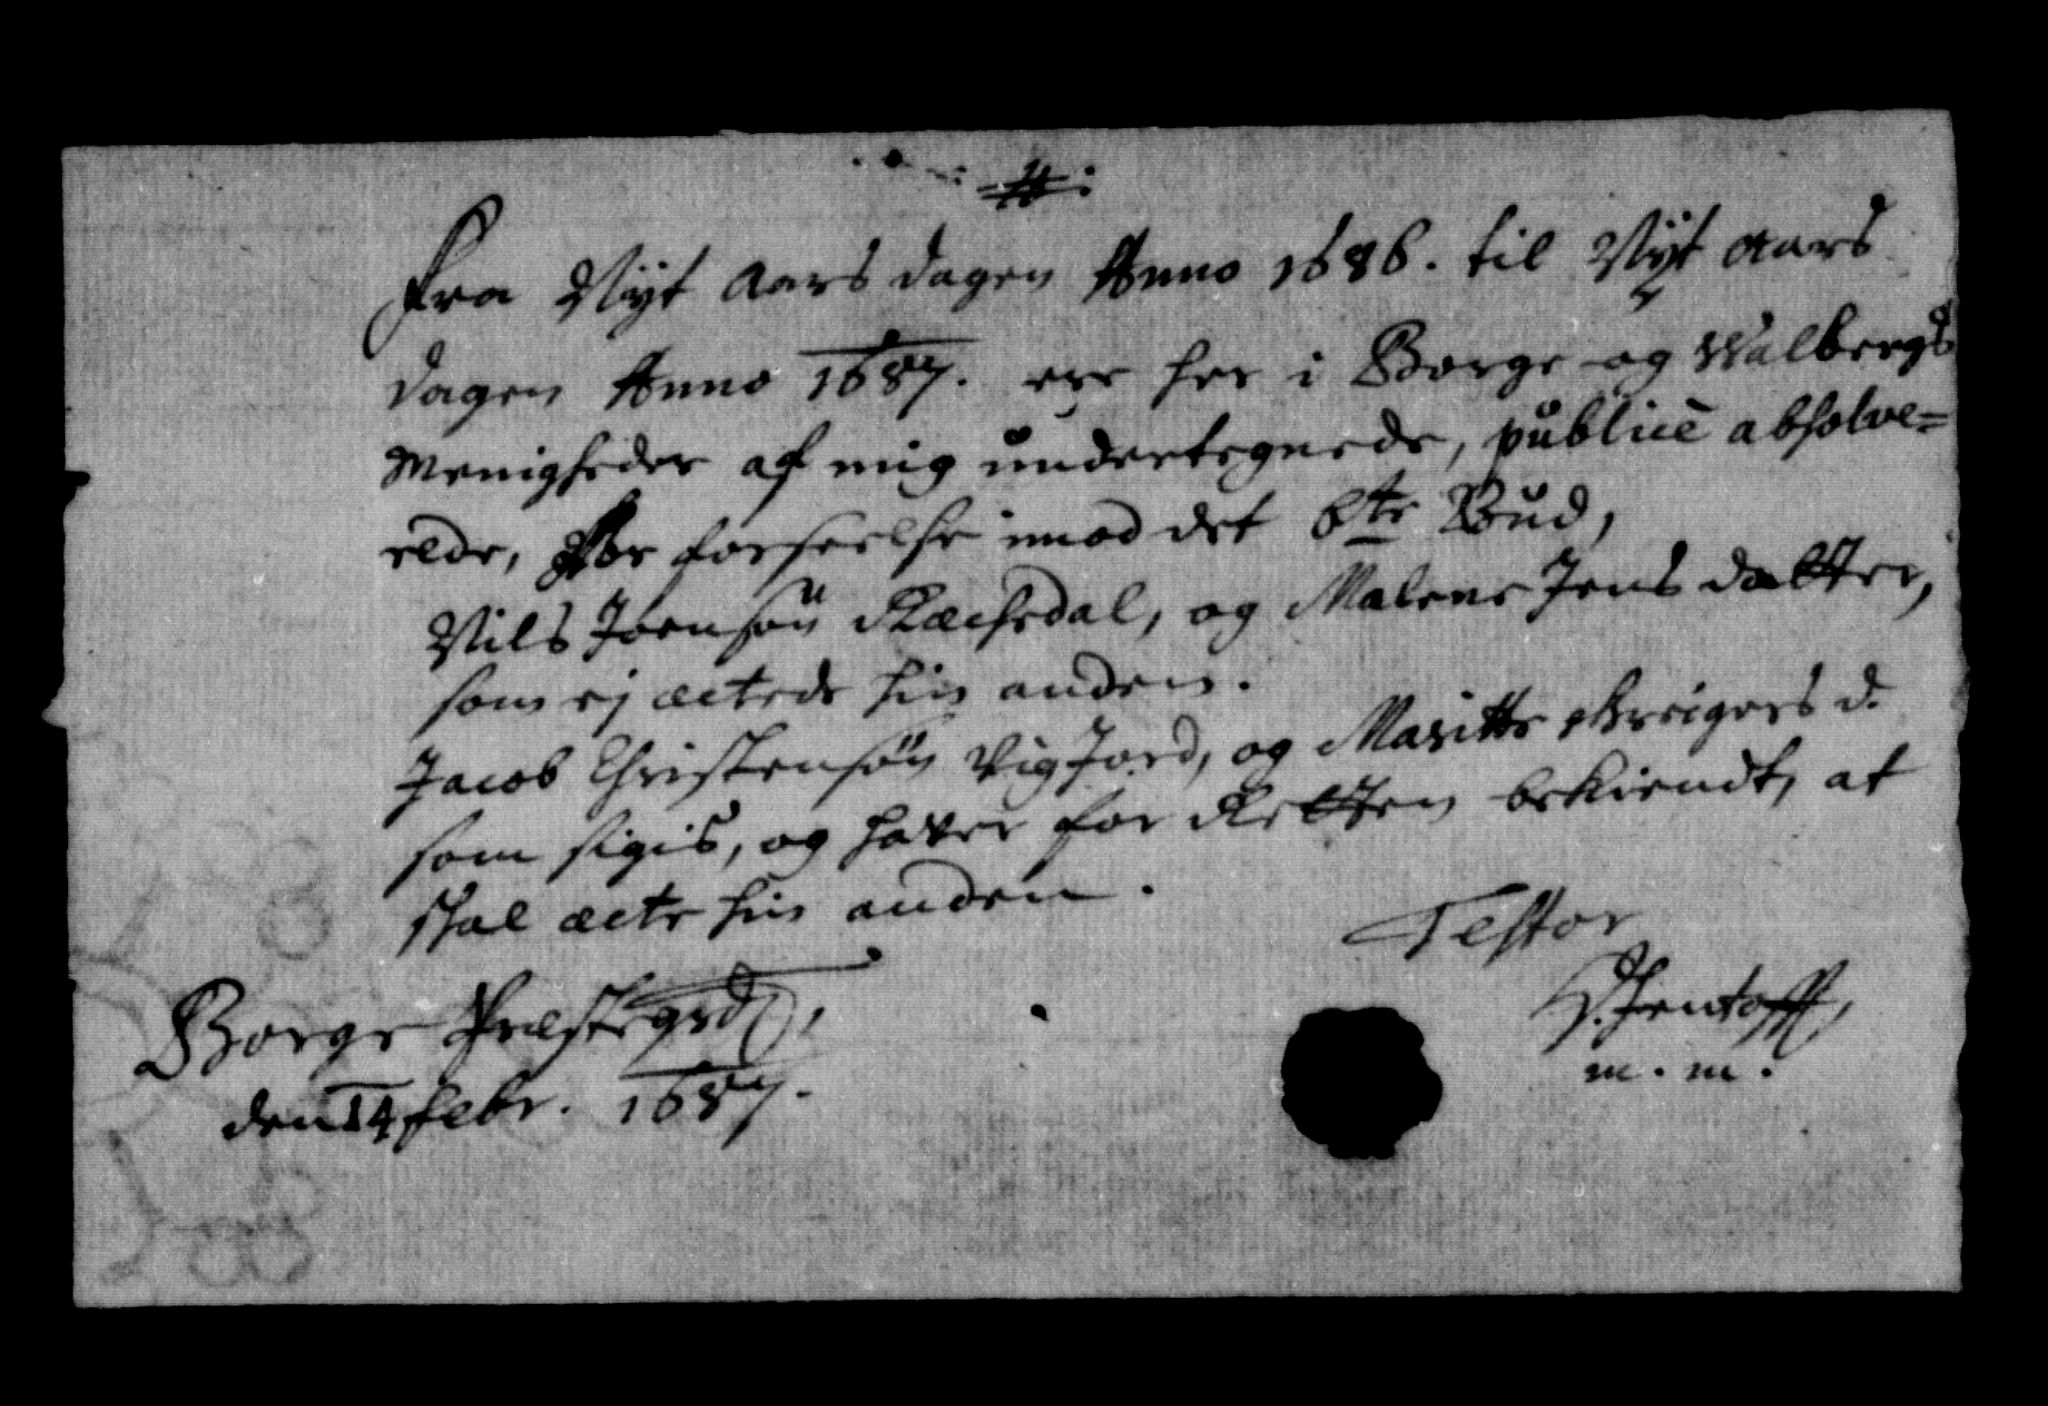 Fra Nyt Aars dagen Anno 1686. til Nyt Aars
dagen Anno 1687. ere her i Borge og Walbergs
Menigheder af mig undertegnede, publicè absolve=
rede, For forseelse imod det 6te Bud,
Nils Joensøn Ræchedal, og Malene Jens datter,
som ej æctede hin anden.
Jacob Christensøn Vigjord, og Maritte Greigers d.
som sigis, og haver for Retten bekiendt, at
skal æcte hin anden.
Testor
Jentofft,
m. m.
Borge Præstegrd,
den 14 Febr. 1687.